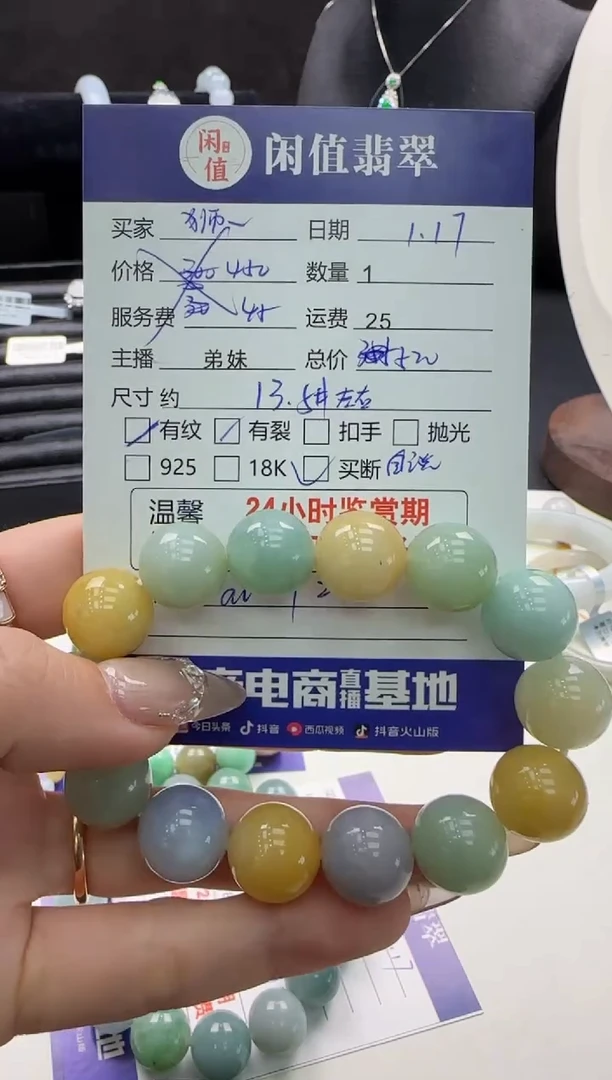 闲值
闲值翡翠
买家 日期 1.17
价格 450 数量 1
服务费 45 运费 25
主播 弟妹 总价 520
尺寸 约 13.5# 左右
有纹 有裂 扣手 抛光
925 18K 买断 自选
温馨 24小时鉴赏期
电商直播基地
今日头条 抖音 西瓜视频 抖音火山版